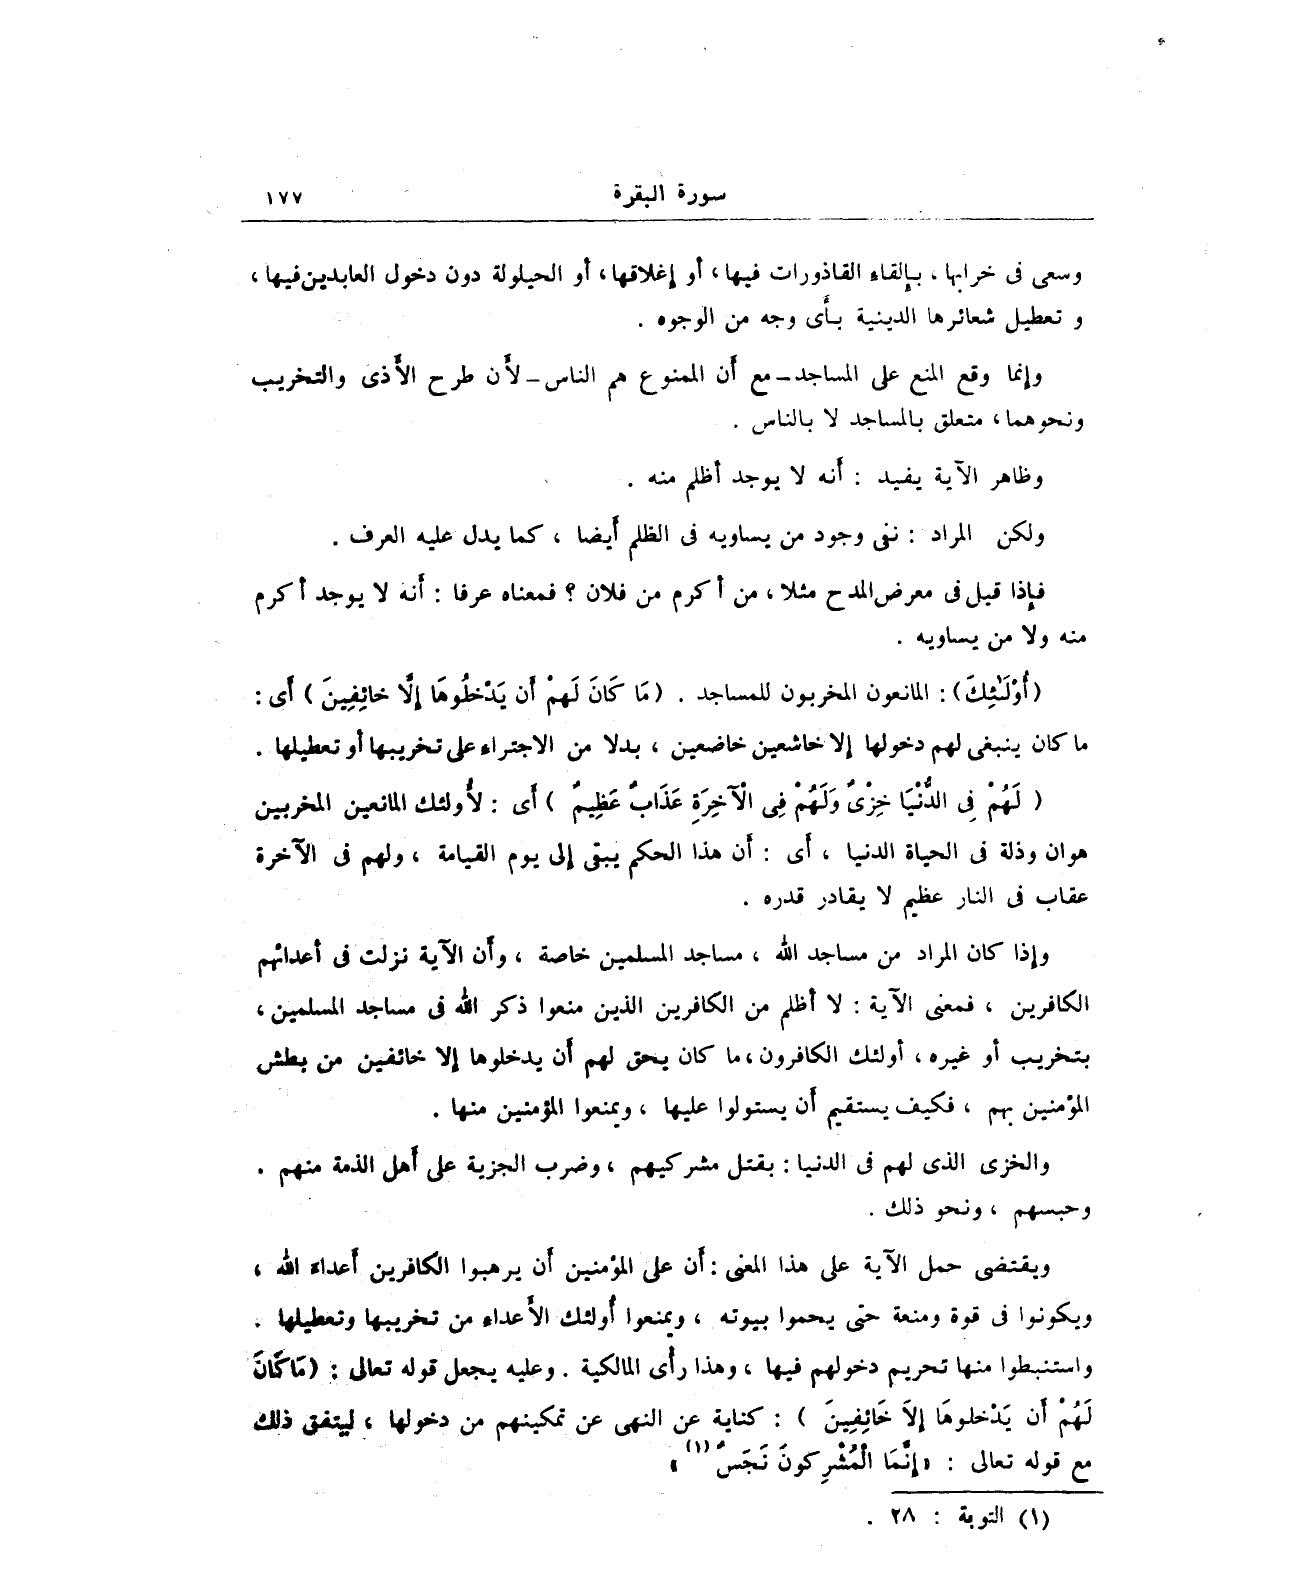 سورة البقرة ١٧٧
وسعى فى خرابها ، بإلقاء القاذورات فيها، أو إغلاقها، أو الحيلولة دون دخول العابدين فيها ،
و تعطيل شعائرها الدينية بأى وجه من الوجوه .
وإنما وقع المنع على المساجد - مع أن الممنوع هم الناس - لأن طرح الأذى والتخريب
ونحوهما، متعلق بالمساجد لا بالناس .
وظاهر الآية يفيد : أنه لا يوجد أظلم منه .
ولكن المراد : نفى وجود من يساويه فى الظلم أيضا ، كما يدل عليه العرف .
فإذا قيل فى معرض المدح مثلا ، من أكرم من فلان ؟ فمعناه عرفا : أنه لا يوجد أكرم
منه ولا من يساويه .
(أُوْلَٰئِكَ) : المانعون المخربون للمساجد . (مَا كَانَ لَهمْ أَن يَدْخلُوهَا إلَّا خائِفِينَ ) أى :
ما كان ينبغى لهم دخولها إلا خاشعين خاضعين ، بدلا من الاجتراء على تخريبها أو تعطيلها .
( لَهُمْ فِى الدُّنْيَا خِزْىٌ وَلَهُمْ فِى الْآخِرَةِ عَذَابٌ عَظِيمٌ ) أى : لأولئك المانعين المخربين
هوان وذلة فى الحياة الدنيا ، أى : أن هذا الحكم يبقى إلى يوم القيامة ، ولهم فى الآخرة
عقاب فى النار عظيم لا يقادر قدره .
وإذا كان المراد من مساجد الله ، مساجد المسلمين خاصة ، وأن الآية نزلت فى أعدائهم
الكافرين ، فمعنى الآية : لا أظلم من الكافرين الذين منعوا ذكر الله فى مساجد المسلمين ،
بتخريب أو غيره ، أولئك الكافرون ، ما كان يحق لهم أن يدخلوها إلا خائفين من بطش
المؤمنين بهم ، فكيف يستقيم أن يستولوا عليها ، ويمنعوا المؤمنين منها .
والخزى الذى لهم فى الدنيا : بقتل مشركيهم ، وضرب الجزية على أهل الذمة منهم .
وحبسهم ، ونحو ذلك .
ويقتضى حمل الآية على هذا المعنى : أن على المؤمنين أن يرهبوا الكافرين أعداء الله ،
ويكونوا فى قوة ومنعة حتى يحموا بيوته ، ويمنعوا أولئك الأعداء من تخريبها وتعطيلها .
واستنبطوا منها تحريم دخولهم فيها ، وهذا رأى المالكية . وعليه يجعل قوله تعالى : (مَا كَانَ
لَهُمْ أَن يَدْخلوهَا إلاَ خَائِفِينَ ) : كناية عن النهى عن تمكينهم من دخولها ، ليتفق ذلك
مع قوله تعالى : «إنَّمَا الْمُشْرِكونَ نَجَسٌ (١) »
(١) التوبة : ٢٨ .